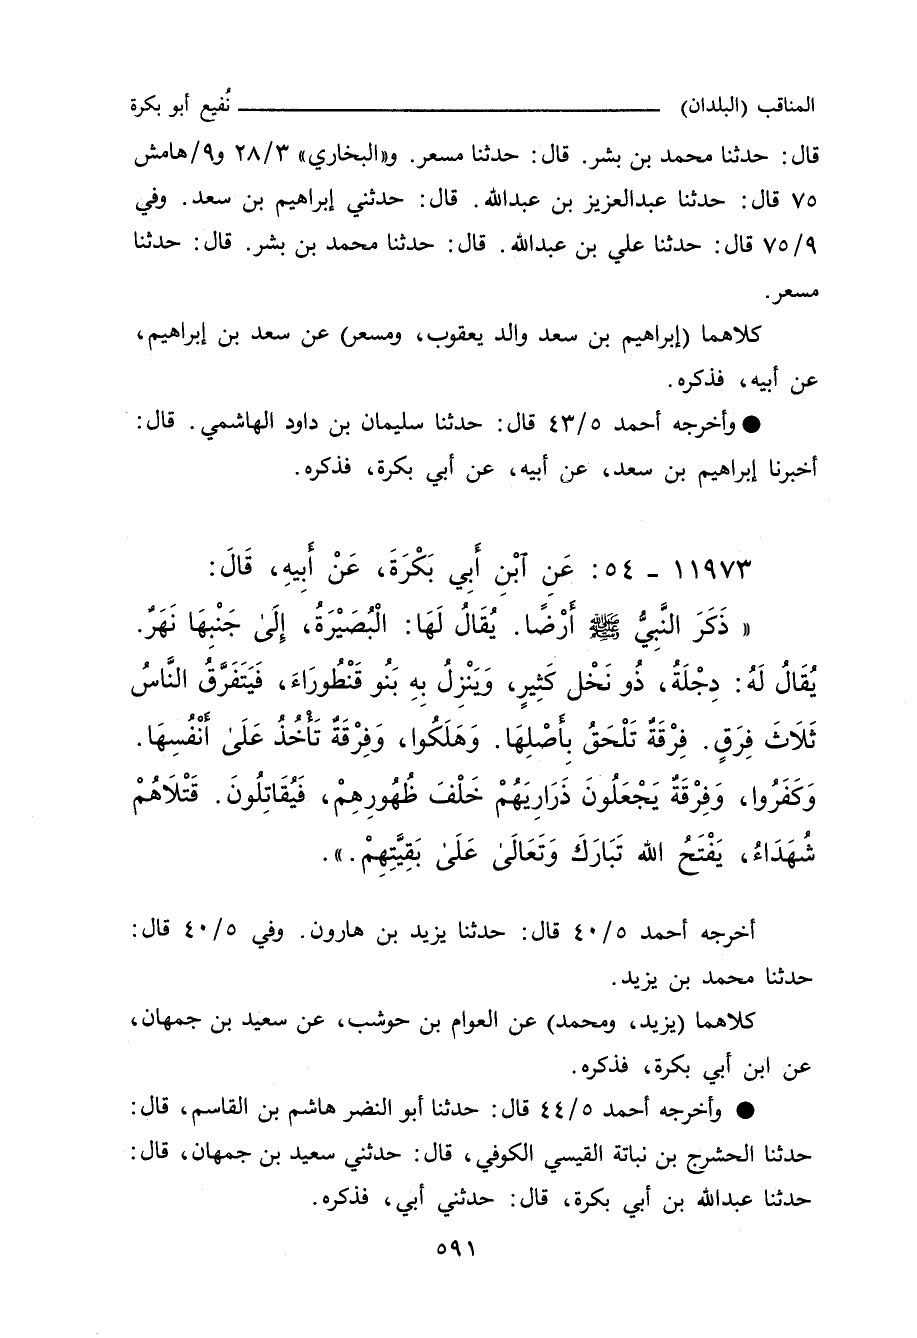 المناقب (البلدان) ــــــــــــــــ نُفيع أبو بكرة
قال: حدثنا محمد بن بشر. قال: حدثنا مسعر. و«البخاري» ٢٨/٣ و٩/هامش
٧٥ قال: حدثنا عبدالعزيز بن عبدالله. قال: حدثني إبراهيم بن سعد. وفي
٧٥/٩ قال: حدثنا علي بن عبدالله. قال: حدثنا محمد بن بشر. قال: حدثنا
مسعر.
كلاهما (إبراهيم بن سعد والد يعقوب، ومسعر) عن سعد بن إبراهيم،
عن أبيه، فذكره.
● وأخرجه أحمد ٤٣/٥ قال: حدثنا سليمان بن داود الهاشمي. قال:
أخبرنا إبراهيم بن سعد، عن أبيه، عن أبي بكرة، فذكره.
١١٩٧٣ - ٥٤: عَنِ ٱبْنِ أَبِي بَكْرَةَ، عَنْ أَبِيهِ، قَالَ:
« ذَكَرَ النَّبِيُّ ﷺ أَرْضًا. يُقَالُ لَهَا: الْبُصَيْرَةُ، إِلَىٰ جَنْبِهَا نَهَرٌ.
يُقَالُ لَهُ: دِجْلَةُ، ذُو نَخْلٍ كَثِيرٍ، وَيَنْزِلُ بِهِ بَنُو قَنْطُورَاءَ، فَيَتَفَرَّقُ النَّاسُ
ثَلَاثَ فِرَقٍ. فِرْقَةٌ تَلْحَقُ بِأَصْلِهَا. وَهَلَكُوا، وَفِرْقَةٌ تَأْخُذُ عَلَىٰ أَنْفُسِهَا.
وَكَفَرُوا، وَفِرْقَةٌ يَجْعَلُونَ ذَرَارِيَهُمْ خَلْفَ ظُهُورِهِمْ، فَيُقَاتِلُونَ. قَتْلَاهُمْ
شُهَدَاءُ، يَفْتَحُ الله تَبَارَكَ وَتَعَالَىٰ عَلَىٰ بَقِيَّتِهِمْ.».
أخرجه أحمد ٤٠/٥ قال: حدثنا يزيد بن هارون. وفي ٤٠/٥ قال:
حدثنا محمد بن يزيد.
كلاهما (يزيد، ومحمد) عن العوام بن حوشب، عن سعيد بن جمهان،
عن ابن أبي بكرة، فذكره.
● وأخرجه أحمد ٤٤/٥ قال: حدثنا أبو النضر هاشم بن القاسم، قال:
حدثنا الحشرج بن نباتة القيسي الكوفي، قال: حدثني سعيد بن جمهان، قال:
حدثنا عبدالله بن أبي بكرة، قال: حدثني أبي، فذكره.
٥٩١